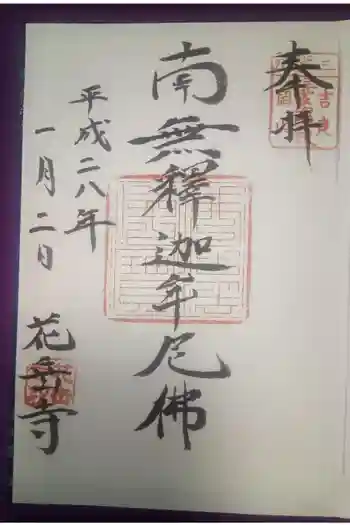 奉拝
南無釋迦牟尼佛
平成二八年
一月二日
花岳寺